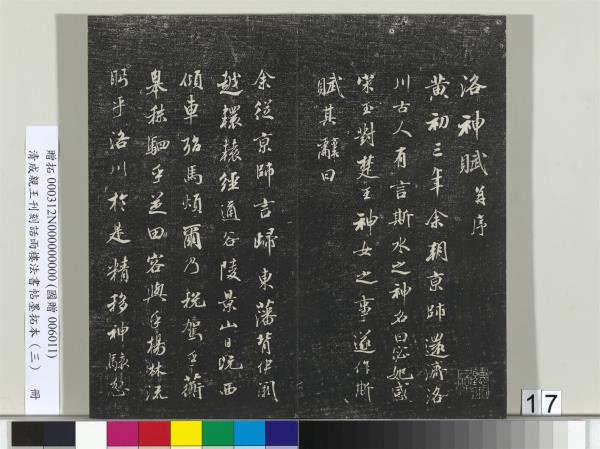 洛神賦 并序
黃初三年余朝京師還濟洛
川古人有言斯水之神名曰宓妃感
宋玉對楚王神女之事遂作斯
賦其辭曰
余從京師言歸東藩背伊闕
越轘轅經通谷陵景山日既西
傾車殆馬煩爾乃稅駕乎蘅
皋秣駟乎芝田容與乎楊林流
眄乎洛川於是精移神駭忽
贈拓 000312N000000000 (國贈 006011)
清成親王刊刻詒雨樓法書帖墨拓本（三） 冊
17